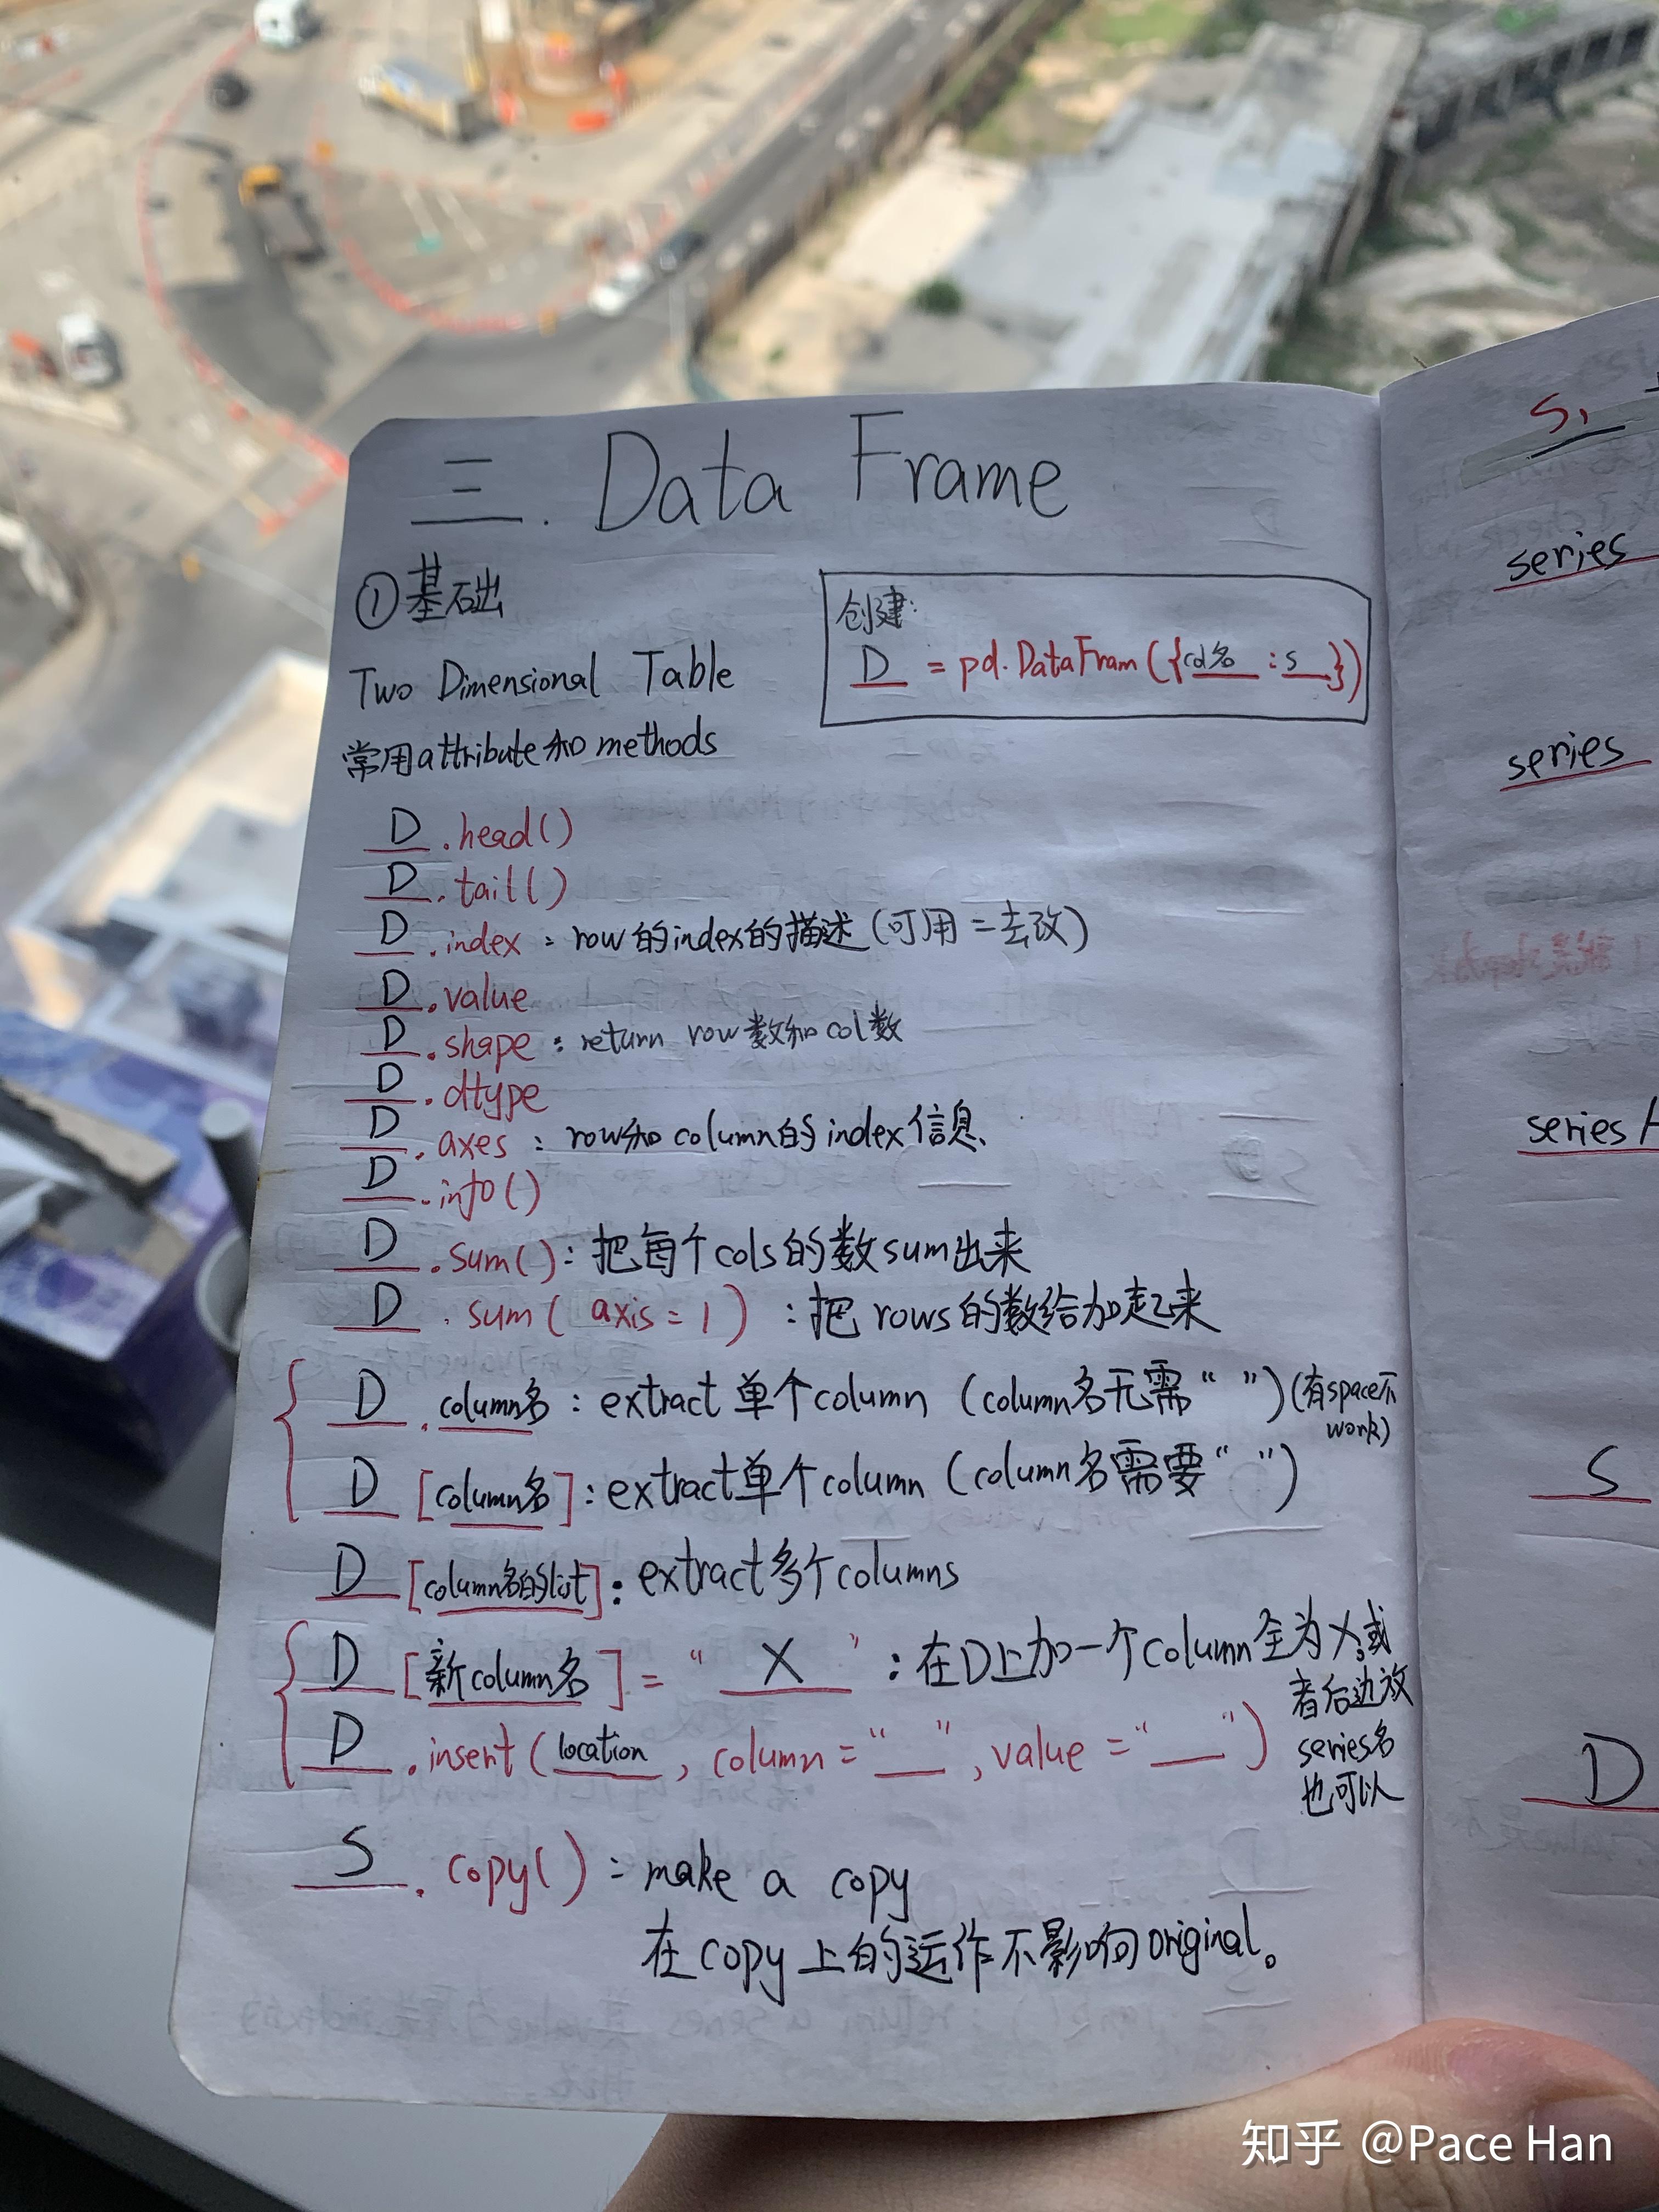 三. Data Frame
①基础
创建:
D = pd.DataFram({col名 : s })
Two Dimensional Table
常用attribute和methods
D.head()
D.tail()
D.index : row的index的描述(可用=去改)
D.value
D.shape : return row数和col数
D.dtype
D.axes : row和column的index信息
D.info()
D.sum() : 把每个cols的数sum出来
D.sum( axis=1 ) : 把rows的数给加起来
D.column名 : extract单个column (column名无需“ ”)(有space不
work)
D[column名] : extract单个column (column名需要“ ”)
D[column名的list] : extract多个columns
D[新column名] = “ X ” : 在D上加一个column全为X,或
者后边放
series名
也可以
D.insert(location, column=“ ”, value=“ ”)
S.copy() : make a copy
在copy上的运作不影响original。
S,
series
series
series
S
D
知乎 @Pace Han